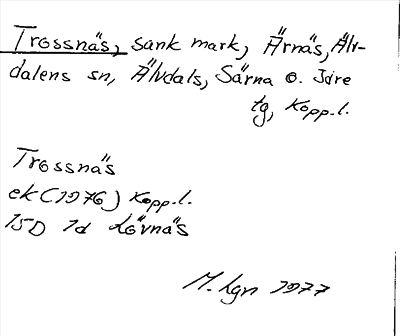 Trossnäs, sank mark, Ärnäs, Älv-
dalens sn, Älvdals, Särna o. Idre
tg, Kopp.l.
Trossnäs
ek (1976) Kopp.l.
15D 1d Lövnäs
M. Lgn 1977